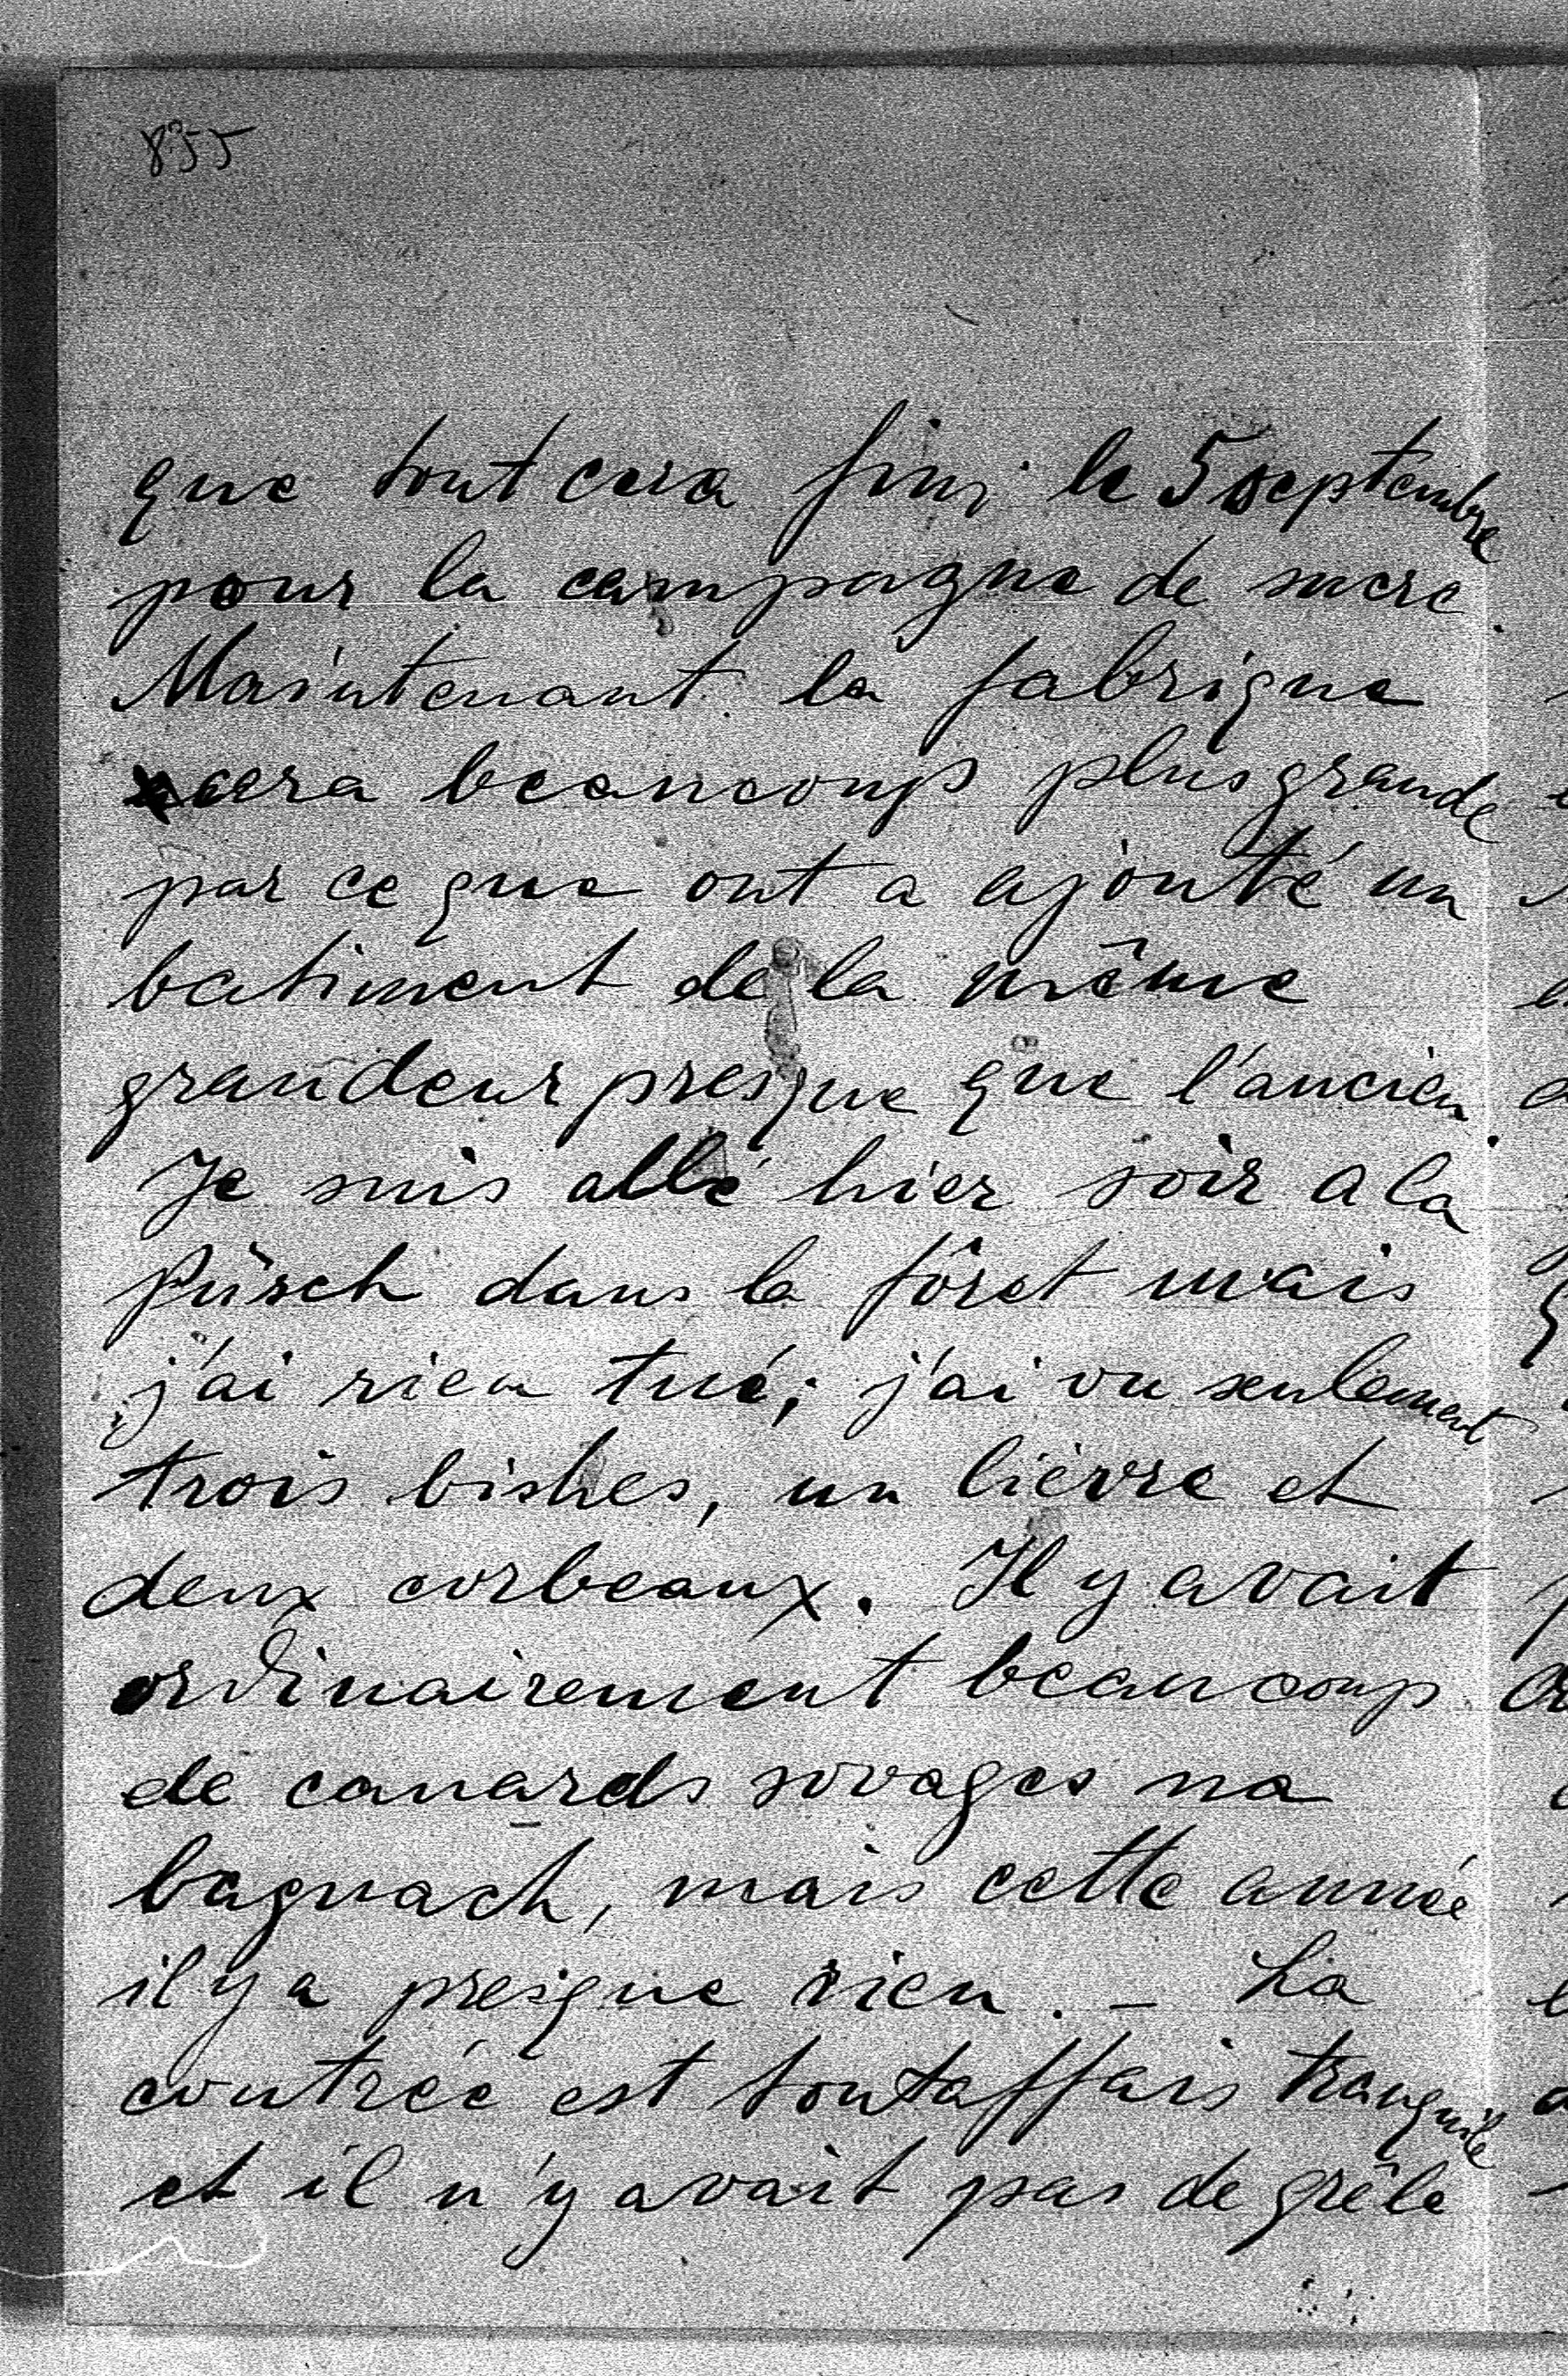 855
que tout cera fini le 5 septembre
pour la campagne de sucre.
Maintenant la fabrique
cera beaucoup plus grande
par ce que ont a ajouté un
batiment de la même
grandeur presque que l'ancien.
Je suis allé hier soir a la
Pürsch dans la fôret mais
j'ai rien tué; j'ai vu seulement
trois bishes, un lièvre et
deux corbeaux. Il y avait
ordinairement beaucoup
de canards sovages na
bagnach, mais cette année
il y a presque rien. - La
contrée est toutaffais tranquile
et il n'y avait pas de grêle